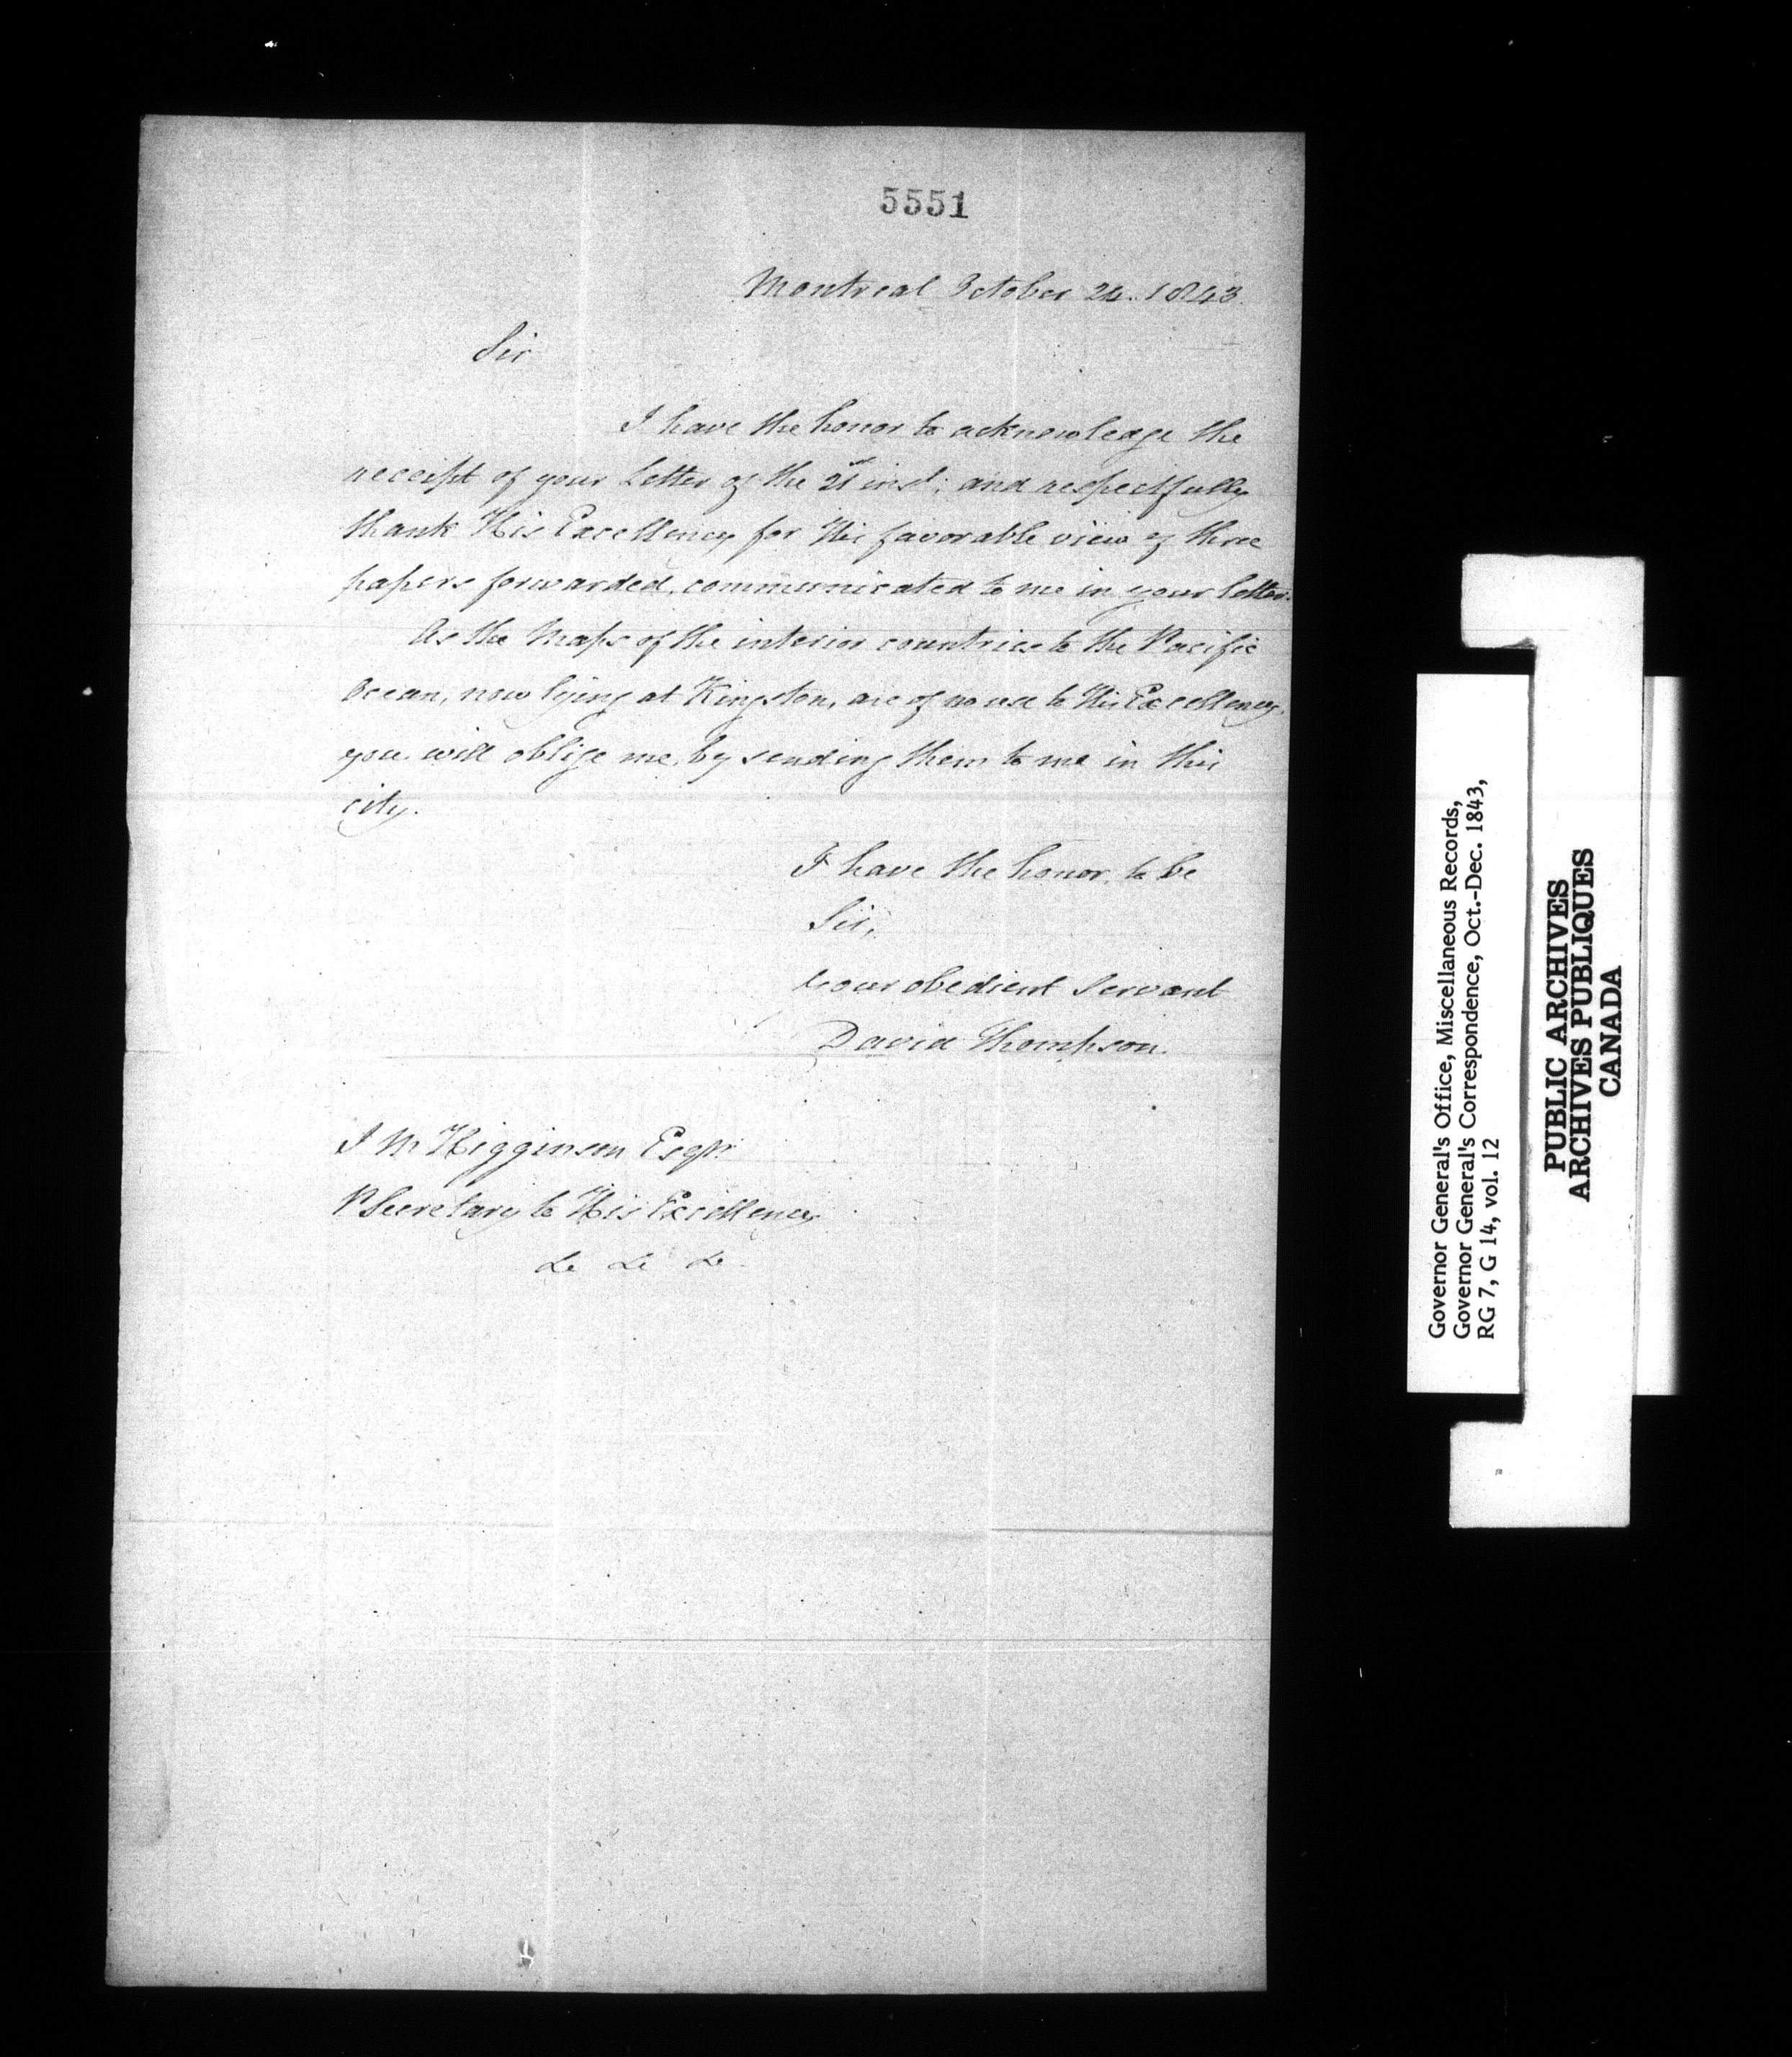 5551
Montreal October 24. 1843.
Sir
I have the honor to acknowledge the
receipt of your Letter of the 21st inst; and respectfully
thank His Excellency for His favorable view of three
papers forwarded, communicated to me in your letter.
As the Maps of the interior countries to the Pacific
Ocean, now lying at Kingston, are of no use to His Excellency,
you will oblige me, by sending them to me in this
city.
I have the honor, to be
Sir,
your obedient Servant
David Thompson.
J M Higginson Esqr
P Secretary to His Excellency
&c &c &c
Governor General's Office, Miscellaneous Records,
Governor General's Correspondence, Oct.-Dec. 1843,
RG 7, G 14, vol. 12
PUBLIC ARCHIVES
ARCHIVES PUBLIQUES
CANADA